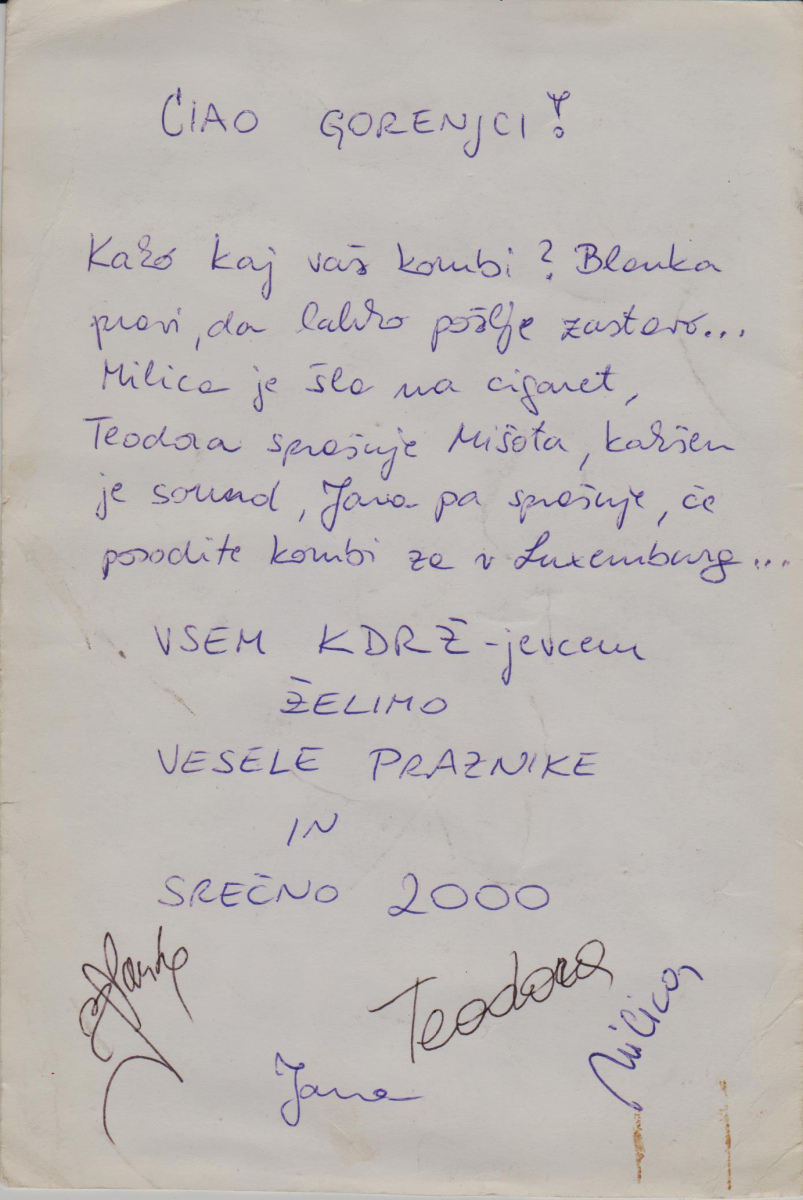 CIAO GORENJCI!
Kako kaj vaš kombi? Blanka
pravi, da lahko pošlje zastavo...
Milica je šla na cigaret,
Teodora sprašuje Mišota, kakšen
je sound, Jana pa sprašuje, če
posodite kombi za v Luxemburg...
VSEM KDRŽ-jevcem
ŽELIMO
VESELE PRAZNIKE
IN
SREČNO 2000
Blanka
Teodora
Milica
Jana